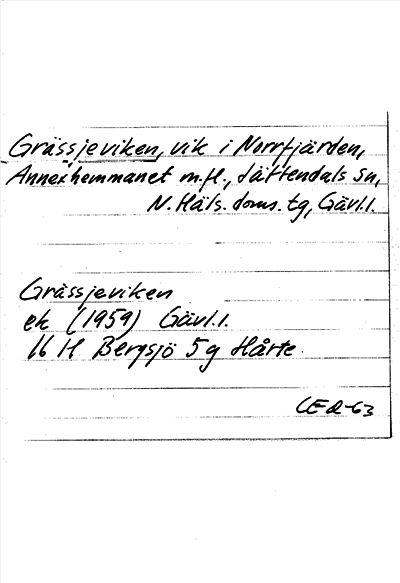 Grässjeviken, vik i Norrfjärden,
Annexhemmanet m.fl., Jättendals sn,
N. Häls. doms. tg, Gävl.l.
Grässjeviken
ek (1959) Gävl.l.
16 H Bergsjö 5g Hårte
CEd-63